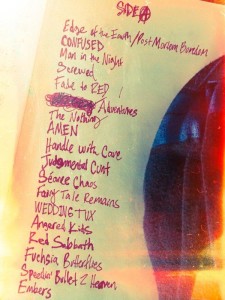 SIDE A
Edge of the Earth/Post Mortem Boredom
CONFUSED
Man in the Night
Screwed
Fade to RED!
Adventures
The Nothing
AMEN
Handle with Care
Judgmental Cunt
Séance Chaos
Fairy Tale Remains
WEDDING TUX
Angered Kids
Red Sabbath
Fuchsia Butterflies
Speedin' Bullet 2 Heaven
Embers